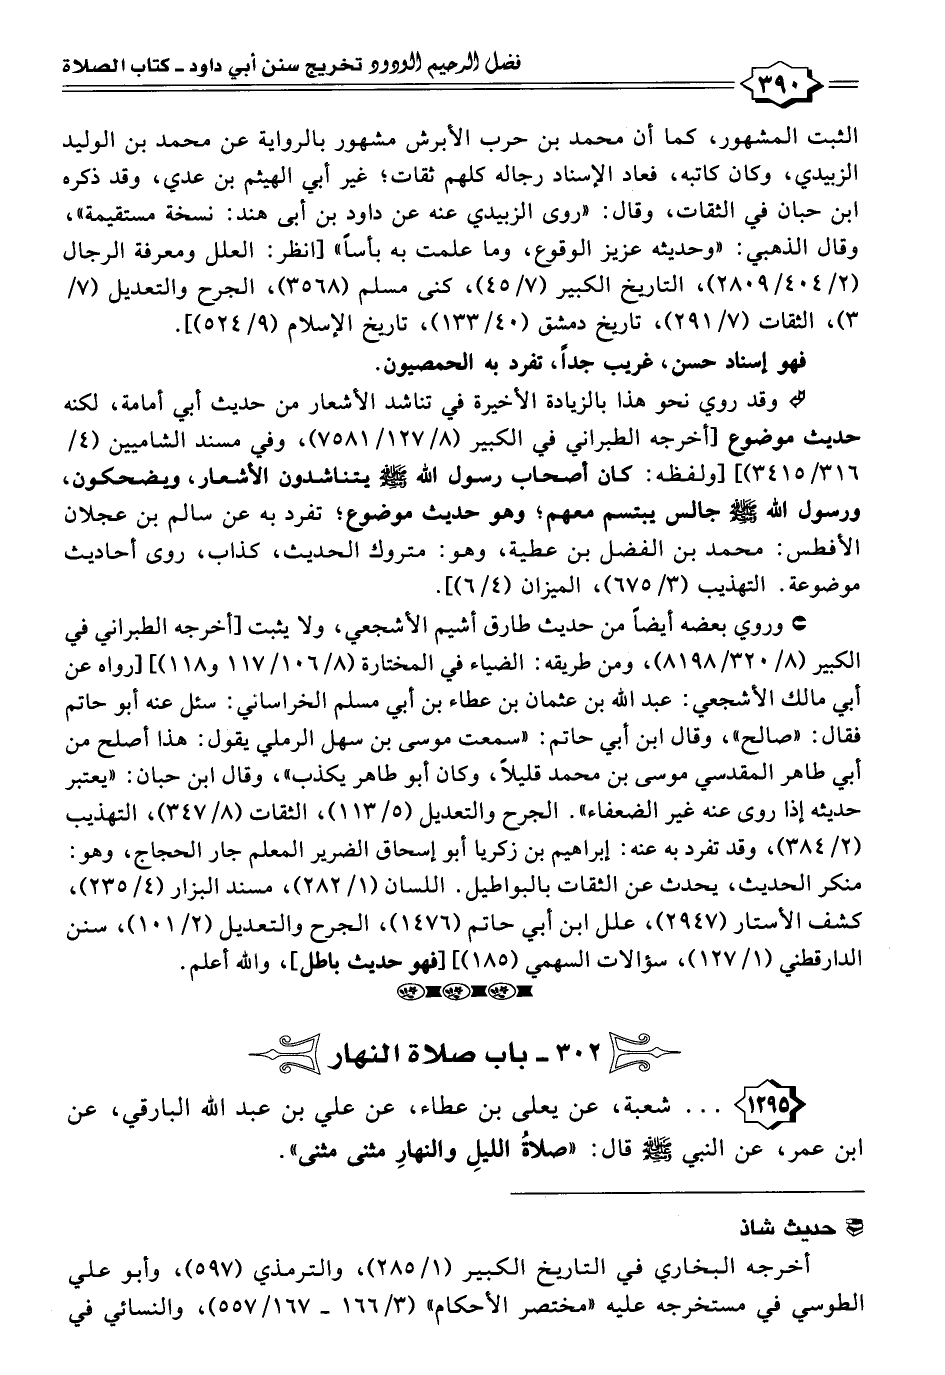 فضل الرحيم الودود تخريج سنن أبي داود ـ كتاب الصلاة
٣٩٠
الثبت المشهور، كما أن محمد بن حرب الأبرش مشهور بالرواية عن محمد بن الوليد
الزبيدي، وكان كاتبه، فعاد الإسناد رجاله كلهم ثقات؛ غير أبي الهيثم بن عدي، وقد ذكره
ابن حبان في الثقات، وقال: «روى الزبيدي عنه عن داود بن أبى هند: نسخة مستقيمة»،
وقال الذهبي: «وحديثه عزيز الوقوع، وما علمت به بأساً» [انظر: العلل ومعرفة الرجال
(٢/ ٤٠٤/ ٢٨٠٩)، التاريخ الكبير (٧/ ٤٥)، كنى مسلم (٣٥٦٨)، الجرح والتعديل (٧/
٣)، الثقات (٧/ ٢٩١)، تاريخ دمشق (٤٠/ ١٣٣)، تاريخ الإسلام (٩/ ٥٢٤)].
فهو إسناد حسن، غريب جداً، تفرد به الحمصيون.
وقد روي نحو هذا بالزيادة الأخيرة في تناشد الأشعار من حديث أبي أمامة، لكنه
حديث موضوع [أخرجه الطبراني في الكبير (٨/ ١٢٧/ ٧٥٨١)، وفي مسند الشاميين (٤/
٣١٦/ ٣٤١٥)] [ولفظه: كان أصحاب رسول الله ﷺ يتناشدون الأشعار، ويضحكون،
ورسول الله ﷺ جالس يبتسم معهم؛ وهو حديث موضوع؛ تفرد به عن سالم بن عجلان
الأفطس: محمد بن الفضل بن عطية، وهو: متروك الحديث، كذاب، روى أحاديث
موضوعة. التهذيب (٣/ ٦٧٥)، الميزان (٤/ ٦)].
وروي بعضه أيضاً من حديث طارق أشيم الأشجعي، ولا يثبت [أخرجه الطبراني في
الكبير (٨/ ٣٢٠/ ٨١٩٨)، ومن طريقه: الضياء في المختارة (٨/ ١٠٦/ ١١٧ و١١٨)] [رواه عن
أبي مالك الأشجعي: عبد الله بن عثمان بن عطاء بن أبي مسلم الخراساني: سئل عنه أبو حاتم
فقال: «صالح»، وقال ابن أبي حاتم: «سمعت موسى بن سهل الرملي يقول: هذا أصلح من
أبي طاهر المقدسي موسى بن محمد قليلاً، وكان أبو طاهر يكذب»، وقال ابن حبان: «يعتبر
حديثه إذا روى عنه غير الضعفاء». الجرح والتعديل (٥/ ١١٣)، الثقات (٨/ ٣٤٧)، التهذيب
(٢/ ٣٨٤)، وقد تفرد به عنه: إبراهيم بن زكريا أبو إسحاق الضرير المعلم جار الحجاج، وهو:
منكر الحديث، يحدث عن الثقات بالبواطيل. اللسان (١/ ٢٨٢)، مسند البزار (٤/ ٢٣٥)،
كشف الأستار (٢٩٤٧)، علل ابن أبي حاتم (١٤٧٦)، الجرح والتعديل (٢/ ١٠١)، سنن
الدارقطني (١/ ١٢٧)، سؤالات السهمي (١٨٥)] [فهو حديث باطل]، والله أعلم.
٣٠٢ ـ باب صلاة النهار
١٢٩٥ ... شعبة، عن يعلى بن عطاء، عن علي بن عبد الله البارقي، عن
ابن عمر، عن النبي ﷺ قال: «صلاةُ الليلِ والنهارِ مثنى مثنى».
حديث شاذ
أخرجه البخاري في التاريخ الكبير (١/ ٢٨٥)، والترمذي (٥٩٧)، وأبو علي
الطوسي في مستخرجه عليه «مختصر الأحكام» (٣/ ١٦٦ ـ ١٦٧/ ٥٥٧)، والنسائي في